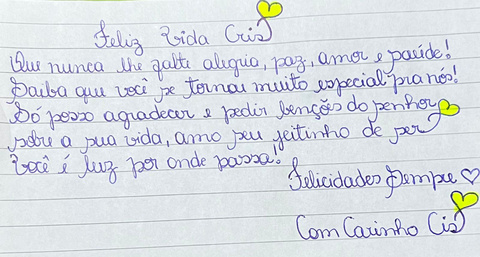 Feliz Vida Cris
Que nunca lhe falte alegria, paz, amor e saúde!
Saiba que você se tornou muito especial pra nós!
Só posso agradecer e pedir bençãos do senhor
sobre a sua vida, amo seu jeitinho de ser
Você é luz por onde passa!
Felicidades Sempre ♡
Com Carinho Cis